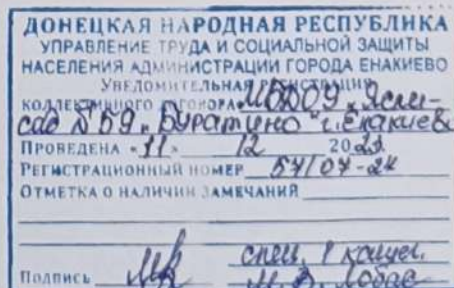 ДОНЕЦКАЯ НАРОДНАЯ РЕСПУБЛИКА
УПРАВЛЕНИЕ ТРУДА И СОЦИАЛЬНОЙ ЗАЩИТЫ
НАСЕЛЕНИЯ АДМИНИСТРАЦИИ ГОРОДА ЕНАКИЕВО
УВЕДОМИТЕЛЬНАЯ РЕГИСТРАЦИЯ
КОЛЛЕКТИВНОГО ДОГОВОРА "Ясли-
сад №59 "Буратино" г. Енакиево
ПРОВЕДЕНА «11» 12 20
РЕГИСТРАЦИОННЫЙ НОМЕР 57/07-2к
ОТМЕТКА О НАЛИЧИИ ЗАМЕЧАНИЙ
спец. 1 катег.
ПОДПИСЬ